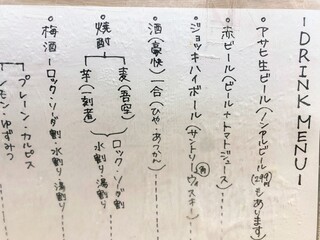 DRINK MENU
・アサヒ生ビール(ノンアルビール(299円)もあります)
・赤ビール(ビール+トマトジュース)
・ジョッキハイボール(サントリーウィスキー)角
・酒(豪快)一合(ひや・あつかん)
・焼酎
麦(吾空)
芋(一刻者)
ロック・ソーダ割
水割り・湯割り
・梅酒ーロック・ソーダ割 水割り・湯割り
プレーン・カルピス
レモン・ゆずみつ